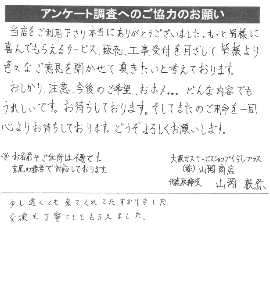 アンケート調査へのご協力のお願い
当店をご利用下さり本当にありがとうございました。もっと皆様に
喜んでもらえるサービス、販売、工事受付を目ざして 皆様より
色々なご意見を聞かせて頂きたいと考えております。
おしかり、注意、今後のご希望、おほメ... どんな内容でも
うれしいです。お待ちしております。そしてまたのご用命を一同
心よりお待ちしております。どうぞよろしくお願いします。
※お名前やご住所は不要です。
大阪ガスサービスショップくらしプラス
(株)山岡商店
代表取締役 山岡
少し遅くても来てくれてたすかりました